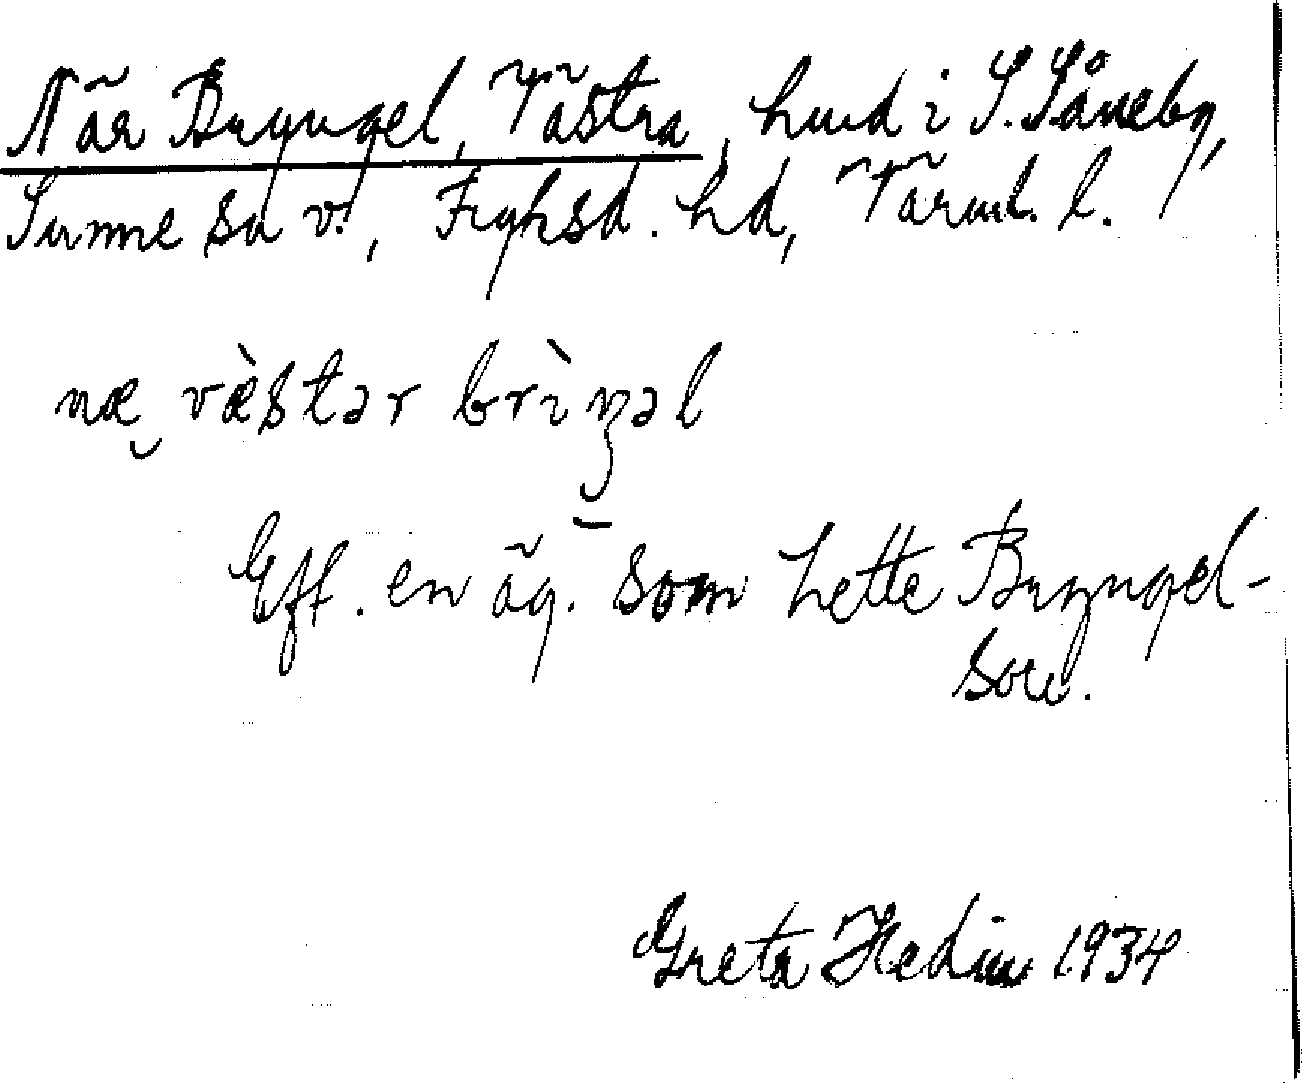 När Bryngel, Västra, hmd i S. Såneby,
Sunne sn v., Fryksd. hd, Värml. l.
næ̮ væ̀stər brìŋəl
Eft. en äg. som hette Bryngel-
son.
Greta Hedin 1934